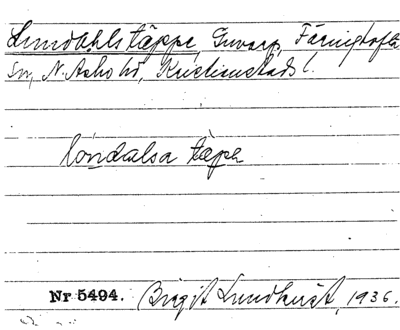 Lundahls täppe, Gunnarp, Färingtofta
Sn, N. Åsbo hd, Kristianstads l.
lóndalsa täpe
Nr 5494. Birgit Lundquist, 1936.